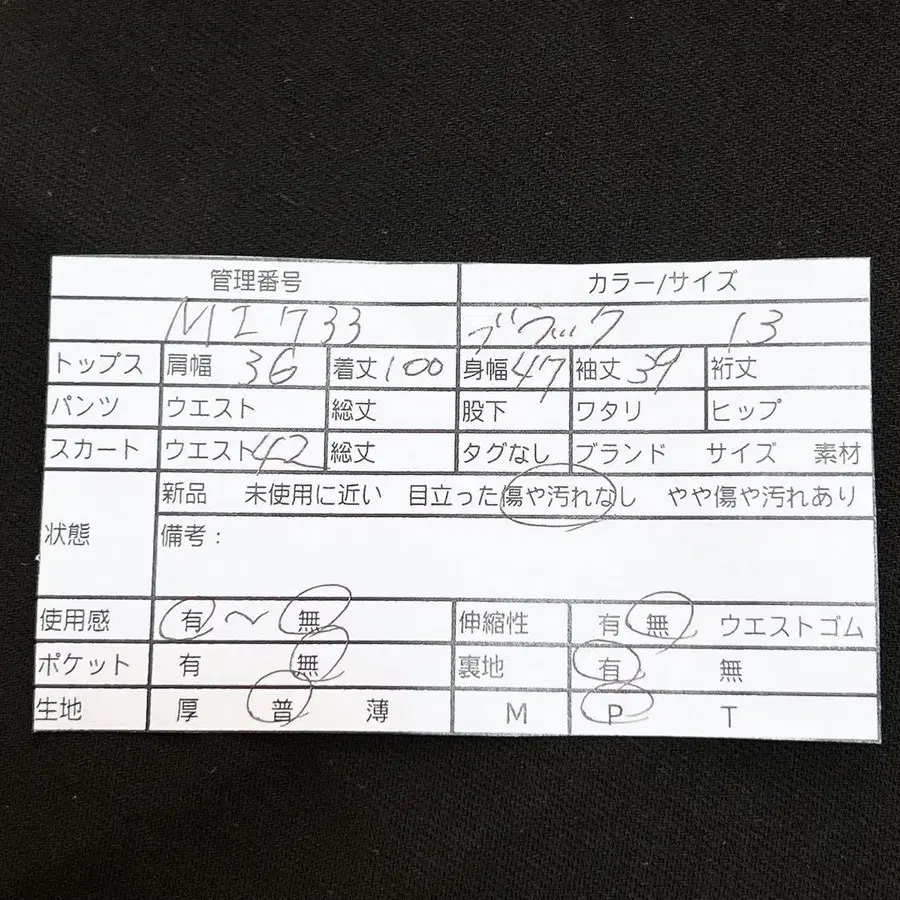 管理番号 カラー/サイズ
MI733 ブラック 13
トップス 肩幅 36 着丈 100 身幅 47 袖丈 39 裄丈
パンツ ウエスト 総丈 股下 ワタリ ヒップ
スカート ウエスト 42 総丈 タグなし ブランド サイズ 素材
状態 新品 未使用に近い 目立った傷や汚れなし やや傷や汚れあり
備考:
使用感 有 〜 無 伸縮性 有 無 ウエストゴム
ポケット 有 無 裏地 有 無
生地 厚 普 薄 M P T